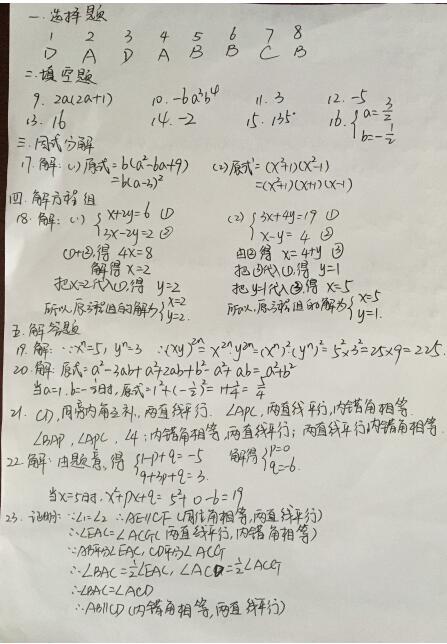 一.选择题
1 2 3 4 5 6 7 8
D A D A B B C B
二.填空题
9. 2a(2a+1) 10. -6a³b⁴ 11. 3 12. -5
13. 16 14. -2 15. 135° 16. {a=3/2 b=-1/2
三.因式分解
17.解:(1)原式=b(a²-6a+9) (2)原式=(x²+1)(x²-1)
=b(a-3)² =(x²+1)(x+1)(x-1)
四.解方程组
18.解:(1) {x+2y=6 ① 3x-2y=2 ② (2) {3x+4y=19 ① x-y=4 ②
①+②,得 4x=8 由②得 x=4+y ③
解得 x=2 把③代入①,得 y=1
把x=2代入①,得 y=2 把y=1代入③,得 x=5
所以,原方程组的解为{x=2 y=2. 所以,原方程组的解为{x=5 y=1.
五.解答题
19.解:∵xⁿ=5, yⁿ=3 ∴(xy)²ⁿ=x²ⁿ·y²ⁿ=(xⁿ)²·(yⁿ)²=5²×3²=25×9=225.
20.解:原式=a²-2ab+a²+2ab+b²-a²+ab=a²+b²
当a=1.b=-1/2时,原式=1²+(-1/2)²=1+1/4=5/4
21. CD,同旁内角互补,两直线平行. ∠APC,两直线平行,内错角相等.
∠BAP,∠APC,∠4;内错角相等,两直线平行;两直线平行,内错角相等.
22.解:由题意,得 {1-p+q=-5 9+3p+q=3. 解得{p=0 q=-6.
当x=5时,x²+px+q=5²+0-6=19
23.证明:∵∠1=∠2 ∴AE∥CF(同位角相等,两直线平行)
∴∠EAC=∠ACG(两直线平行,内错角相等)
∵AB平分∠EAC, CD平分∠ACG
∴∠BAC=1/2∠EAC, ∠ACD=1/2∠ACG
∴∠BAC=∠ACD
∴AB∥CD(内错角相等,两直线平行)